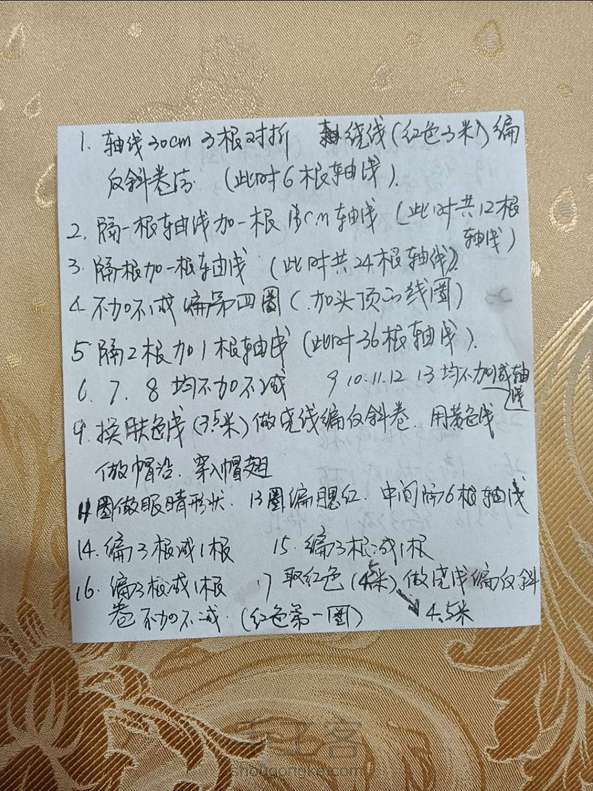 1. 轴线30cm 3根对折 绕线(红色3米)编
反斜卷结 (此时6根轴线).
2. 隔一根轴线加一根15cm轴线 (此时共12根
轴线)
3. 隔根加一根轴线 (此时共24根轴线)
4. 不加不减编第四圈 (加头顶的线圈)
5 隔2根加1根轴线 (此时36根轴线).
6. 7. 8 均不加不减 9 10.11.12 13 均不加减轴
线
9. 换肤色线(3.5米)做绕线编反斜卷. 用黄色线
做帽沿. 穿入帽翅
11圈做眼睛形状. 13圈编腮红. 中间隔6根轴线
14. 编3根减1根 15. 编3根减1根
16. 编3根减1根 17 取红色(4.5米)做绕线编反斜
卷 不加不减. (红色第一圈) 4.5米
手工客
shougongke.com